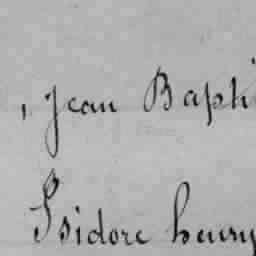 , Jean Bapti
Isidore henry